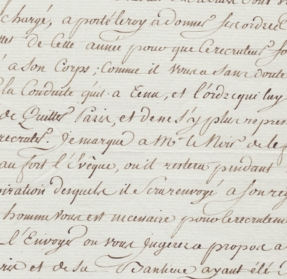 chargé, a porté le roy a donner ses ordres
de Cette année pour que le recruteur so
à Son Corps; Comme il vous a Sans doute
la Conduite qu'il a tenu, et l'ordre qui luy
de quitter Paris, et de ne s'y plus repren
recruter. Je marque a Mr le Noir de le f
au fort l'Evêque, ou il restera pendant
piration desquels il Sera renvoyé a Son reg
homme vous est nécessaire pour le recrutem
l'Envoyer ou vous Jugerez a propos a
ris et de Sa Banlieue ayant été